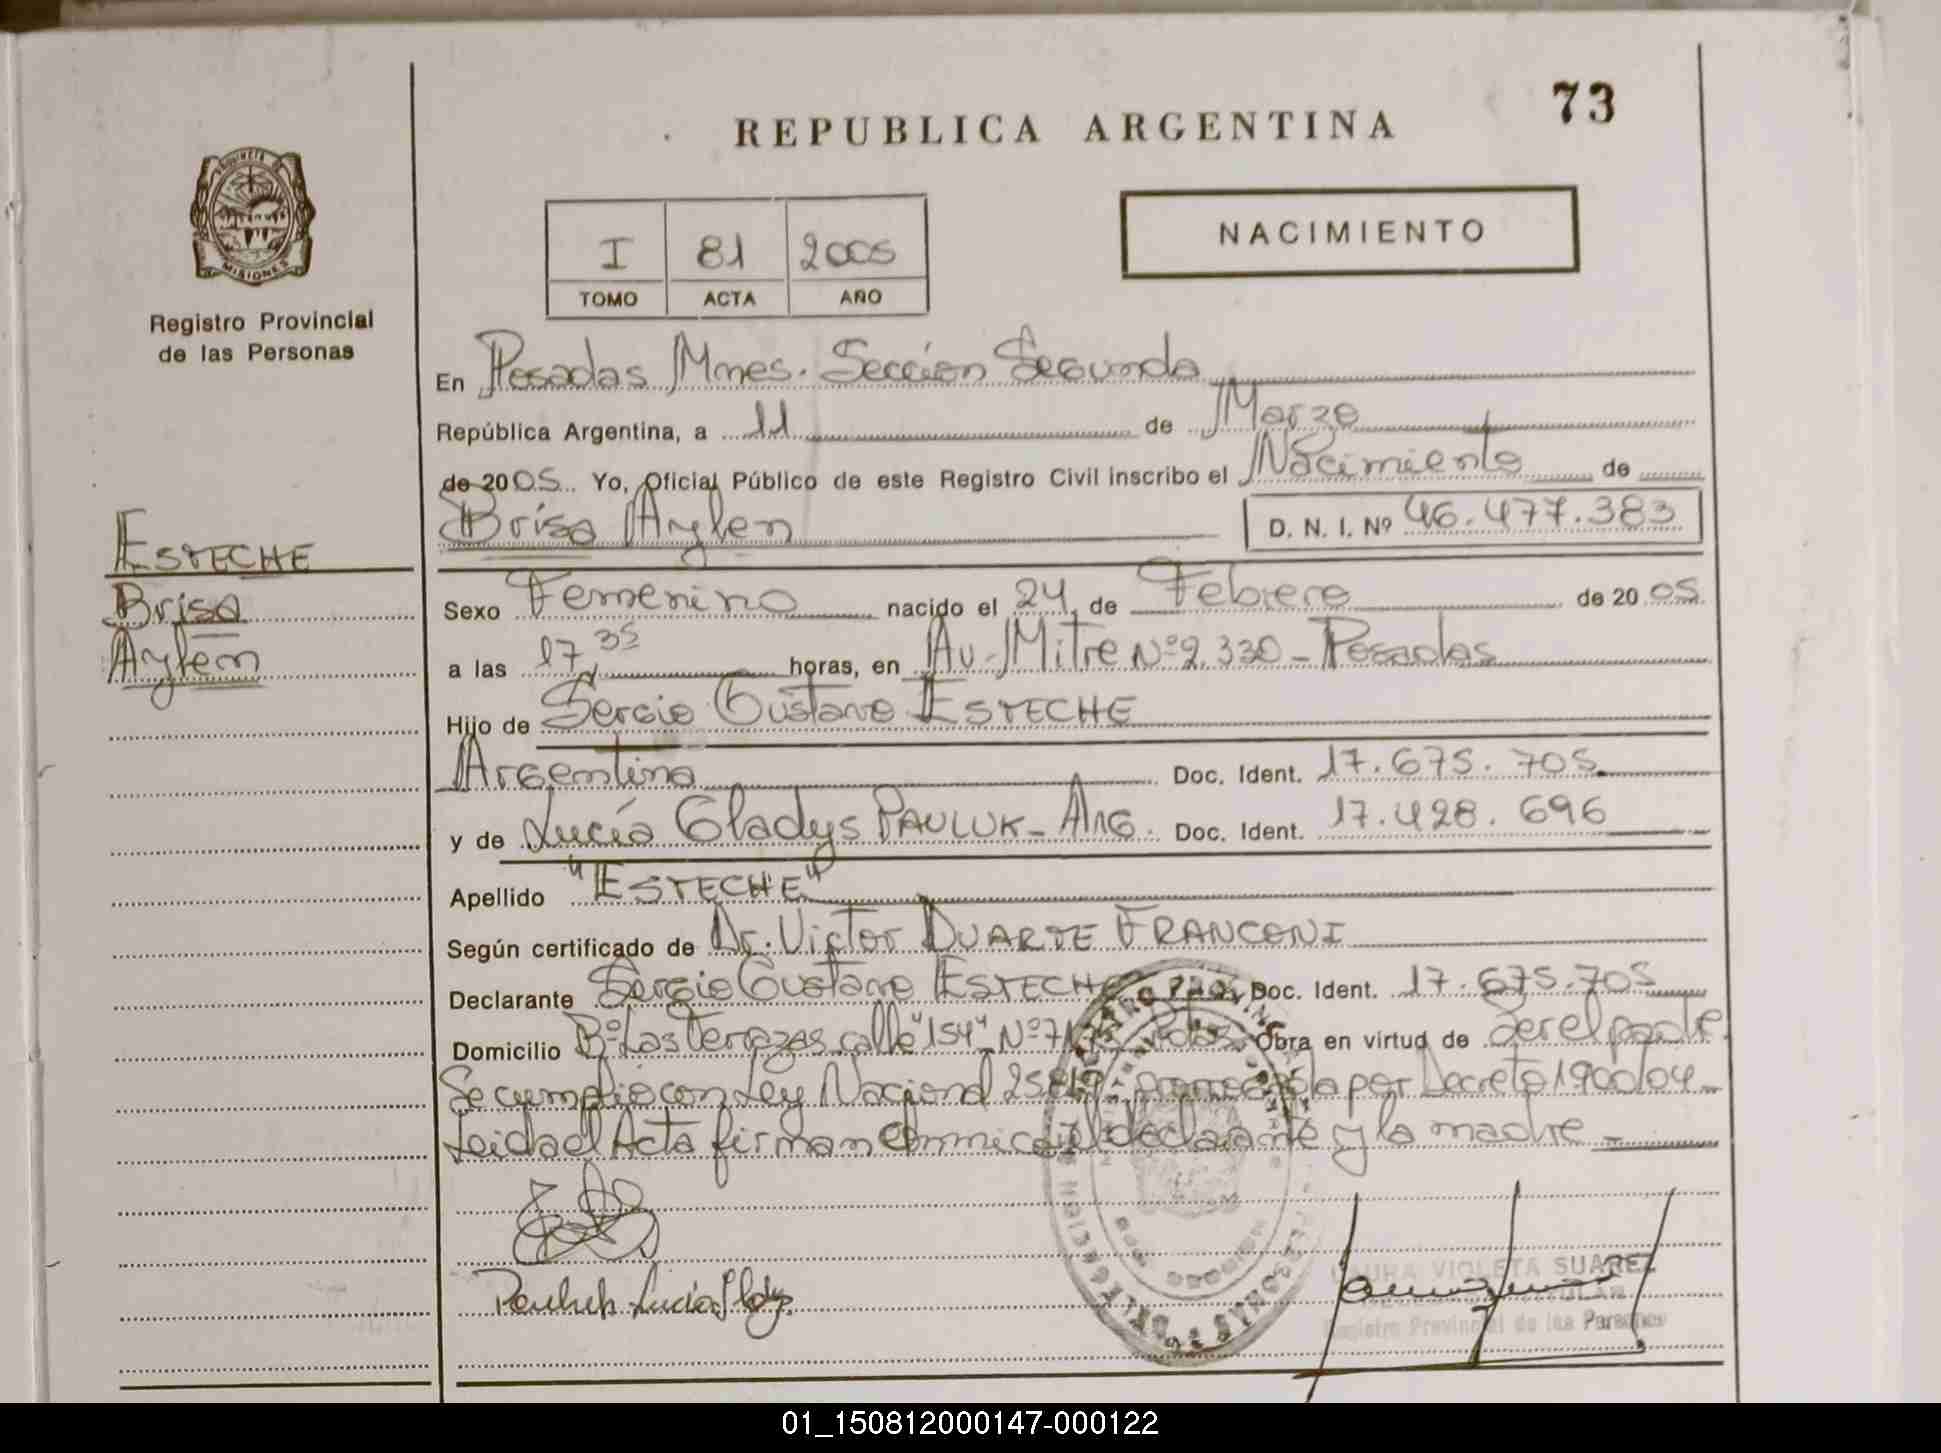 73
REPUBLICA ARGENTINA
NACIMIENTO
I 81 2005
TOMO ACTA AÑO
PROVINCIA DE
MISIONES
Registro Provincial
de las Personas
ESTECHE
Brisa
Aylen
En Posadas Mnes. Sección Segunda
República Argentina, a 11 de Marzo
de 2005 Yo, Oficial Público de este Registro Civil inscribo el Nacimiento de
Brisa Aylen D. N. I. Nº 46.477.383
Sexo Femenino nacido el 24 de Febrero de 2005
a las 17,35 horas, en Av. Mitre Nº 2.330 - Posadas
Hijo de Sergio Gustavo ESTECHE
Argentina Doc. Ident. 17.675.705
y de Lucía Gladys PAULUK - Arg. Doc. Ident. 17.428.696
Apellido "ESTECHE"
Según certificado de Dr. Victor DUARTE FRANCONI
Declarante Sergio Gustavo ESTECHE Doc. Ident. 17.675.705
Domicilio Bº Las Terrazas calle "154" Nº Pdas. Obra en virtud de Ser el padre.
Se cumplió con Ley Nacional por Decreto 1900/04 -
Leida el Acta firman conmigo el declarante y la madre -
Pauluk Lucía Gladys
LAURA VIOLETA SUAREZ
TITULAR
Registro Provincial de las Personas
01_150812000147-000122